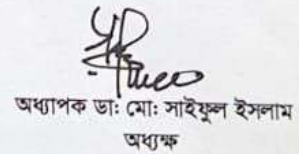 অধ্যাপক ডা: মো: সাইফুল ইসলাম
অধ্যক্ষ